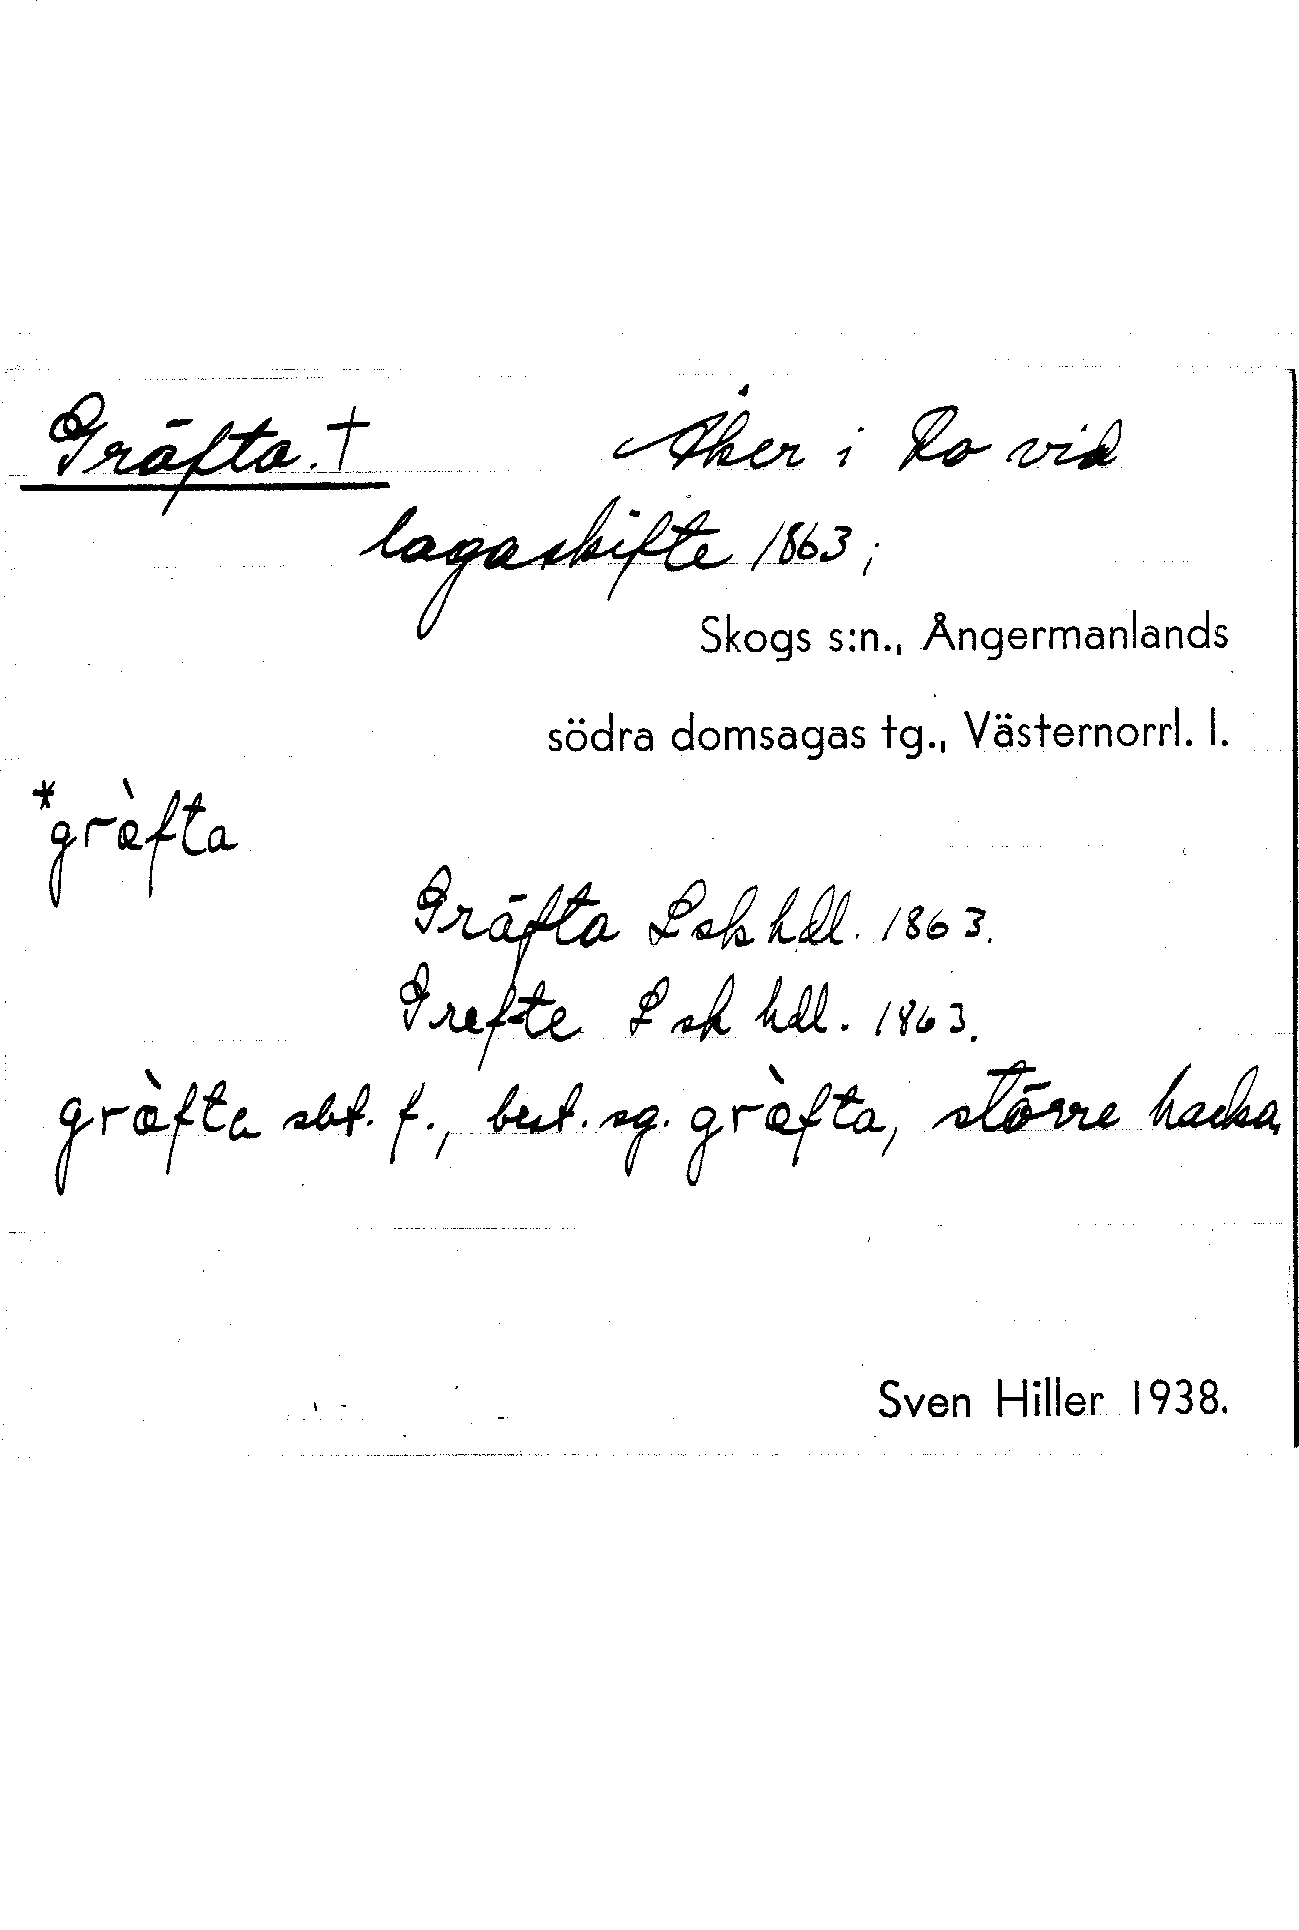 Gräfta. † Åker i Ro vid
lagaskifte 1863;
Skogs s:n., Ångermanlands
södra domsagas tg., Västernorrl. l.
*græ̀fta
Gräfta Lsk hdl. 1863.
Grefte Lsk hdl. 1863.
græ̀fta sbt. f., best. sg. græ̀fta, större hacka.
Sven Hiller 1938.